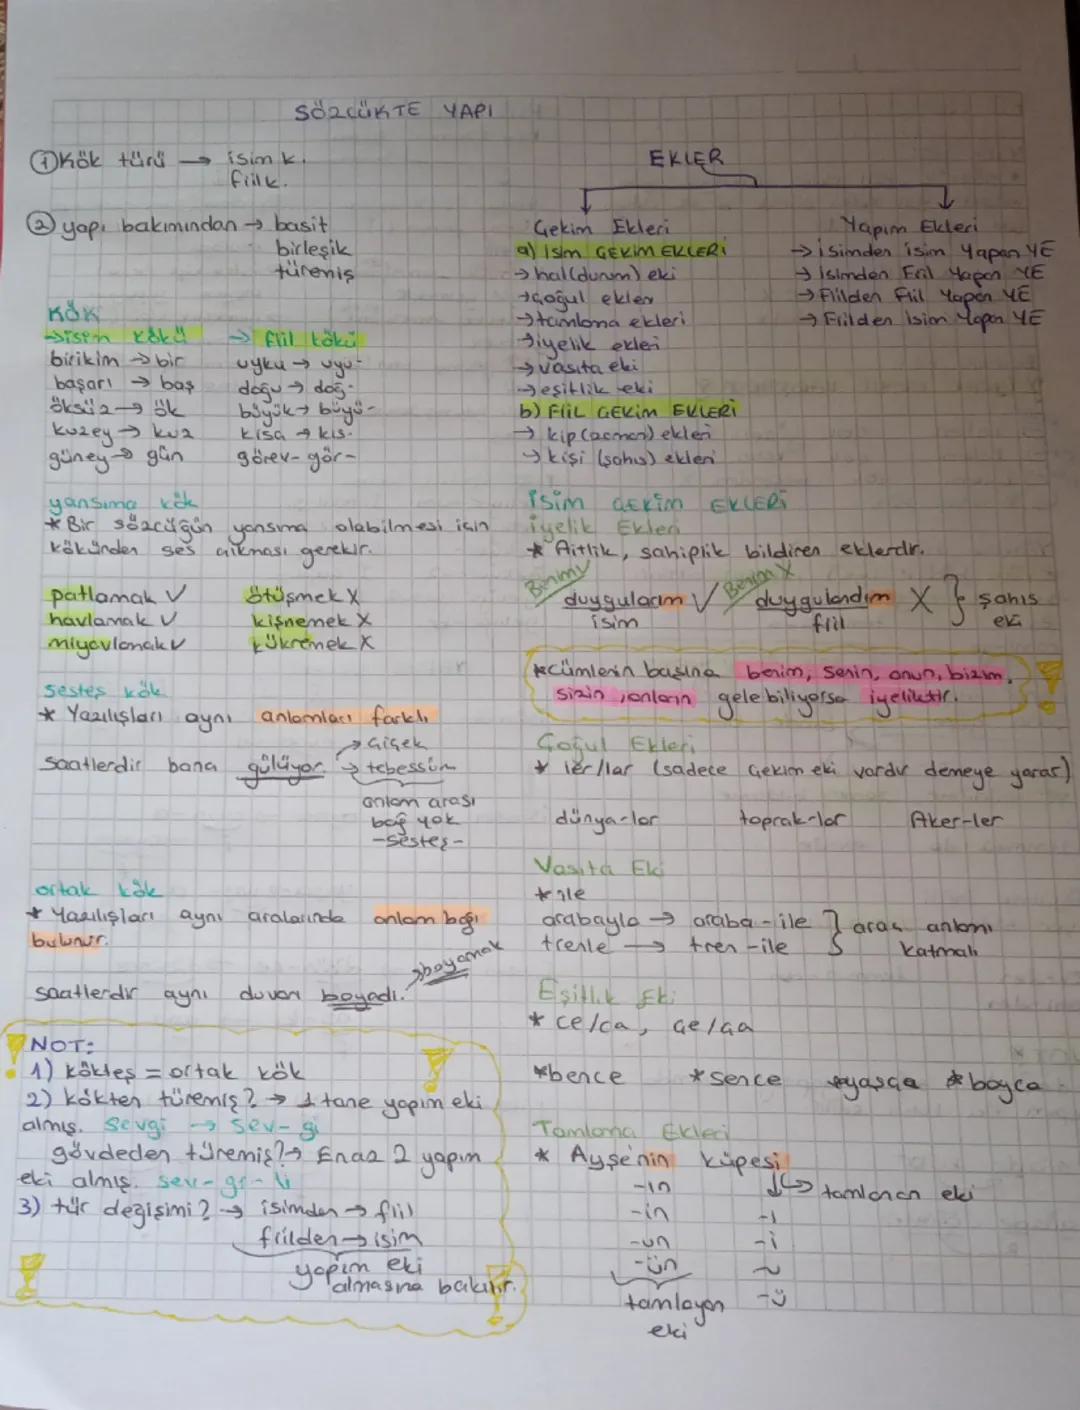 SÖZCÜKTE YAPI
① Kök türü → isim k.
fiil k.
② yapı bakımından → basit
birleşik
türemiş
KÖK
→ isim kökü → fiil kökü
birikim → bir uyku → uyu-
başarı → baş doğu → doğ-
öksüz → ök büyük → büyü-
kuzey → kuz kısa → kıs-
güney → gün görev - gör-
yansıma kök
* Bir sözcüğün yansıma olabilmesi için
kökünden ses çıkması gerekir.
patlamak ✓ ötüşmek X
havlamak ✓ kişnemek X
miyavlamak ✓ kükremek X
sesteş kök
* Yazılışları aynı anlamları farklı
→ çiçek
Saatlerdir bana gülüyor. → tebessüm
anlam arası
bağ yok
-sesteş-
ortak kök
* Yazılışları aynı aralarında anlam bağı
bulunur.
→ boyamak
Saatlerdir aynı duvarı boyadı.
NOT:
1) kökteş = ortak kök
2) kökten türemiş? → 1 tane yapım eki
almış. Sevgi → sev-gi
gövdeden türemiş? → En az 2 yapım
eki almış. sev-gi-li
3) tür değişimi? → isimden → fiil
fiilden → isim
yapım eki
almasına bakılır.
EKLER
Çekim Ekleri Yapım Ekleri
a) İsim ÇEKİM EKLERİ → İsimden isim Yapan YE
→ hal(durum) eki → İsimden Fiil Yapan YE
→ çoğul ekler → Fiilden Fiil Yapan YE
→ tamlama ekleri → Fiilden İsim Yapan YE
→ iyelik ekleri
→ vasıta eki
→ eşitlik eki
b) FİİL ÇEKİM EKLERİ
→ kip (zaman) ekleri
→ kişi (şahıs) ekleri
İSİM ÇEKİM EKLERİ
İyelik Ekleri
* Aitlik, sahiplik bildiren eklerdir.
Benim ✓ Benim X
duygularım ✓ duygulandım X } şahıs
isim fiil eki
* Cümlenin başına benim, senin, onun, bizim,
sizin, onların gelebiliyorsa iyeliktir.
Çoğul Ekleri
* ler/lar (sadece çekim eki vardır demeye yarar)
dünya-lar toprak-lar Aker-ler
Vasıta Eki
* ile
arabayla → araba-ile } araç anlamı
trenle → tren-ile katmalı
Eşitlik Eki
* ce/ca, çe/ça
* bence * sence * yaşça * boyca
Tamlama Ekleri
* Ayşe'nin küpesi
→ tamlanan eki
-ın -ı
-in -i
-un
-ün -ü
tamlayan
eki